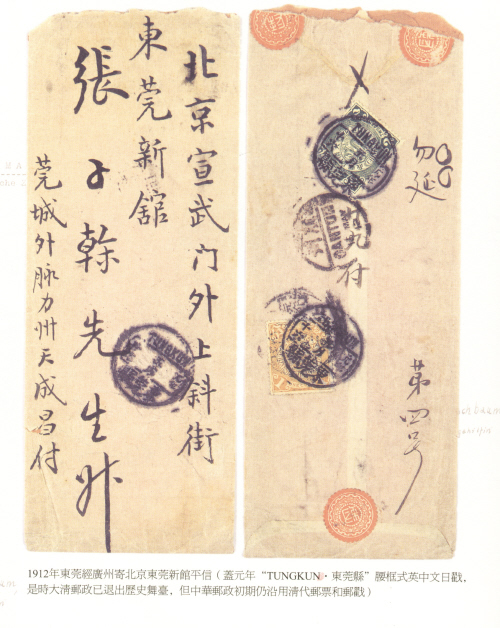 北京宣武门外上斜街
東莞新舘
張子幹先生升
莞城外脉力州天成昌付
TUNGKUN
勿延
TUNGKUN
CANTON
付
第四号
1912年東莞經廣州寄北京東莞新館平信（蓋元年“TUNGKUN·東莞縣”腰框式英中文日戳，
是時大清郵政已退出歷史舞臺，但中華郵政初期仍沿用清代郵票和郵戳）